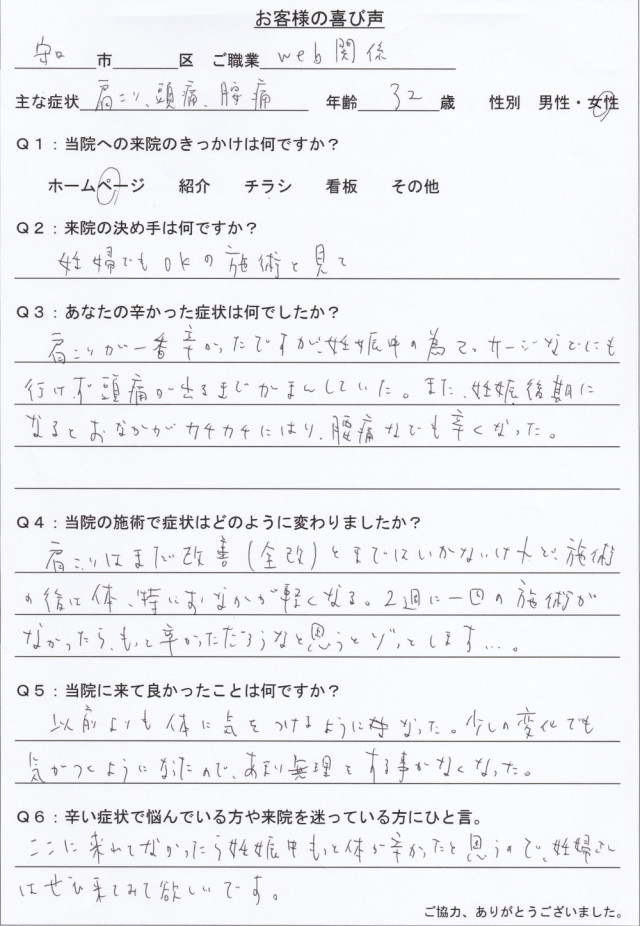 お客様の喜び声
守口市　　　区　ご職業 web関係
主な症状 肩こり、頭痛、腰痛　年齢 32 歳　性別　男性・女性
Q1：当院への来院のきっかけは何ですか？
ホームページ　紹介　チラシ　看板　その他
Q2：来院の決め手は何ですか？
妊婦でもOKの施術と見て
Q3：あなたの辛かった症状は何でしたか？
肩こりが一番辛かったですが、妊娠中の為マッサージなどにも
行けず頭痛が出るまでがまんしていた。また、妊娠後期に
なるとおなかがカチカチにはり、腰痛なども辛くなった。
Q4：当院の施術で症状はどのように変わりましたか？
肩こりはまだ改善（全改）とまではいかないけれど、施術
の後は体、特におなかが軽くなる。2週に一回の施術が
なかったら、もっと辛かっただろうなと思うとゾッとします…。
Q5：当院に来て良かったことは何ですか？
以前よりも体に気をつけるようになった。少しの変化でも
気がつくようになったので、あまり無理をする事がなくなった。
Q6：辛い症状で悩んでいる方や来院を迷っている方にひと言。
ここに来れてなかったら妊娠中もっと体が辛かったと思うので、妊婦さん
はぜひ来てみて欲しいです。
ご協力、ありがとうございました。